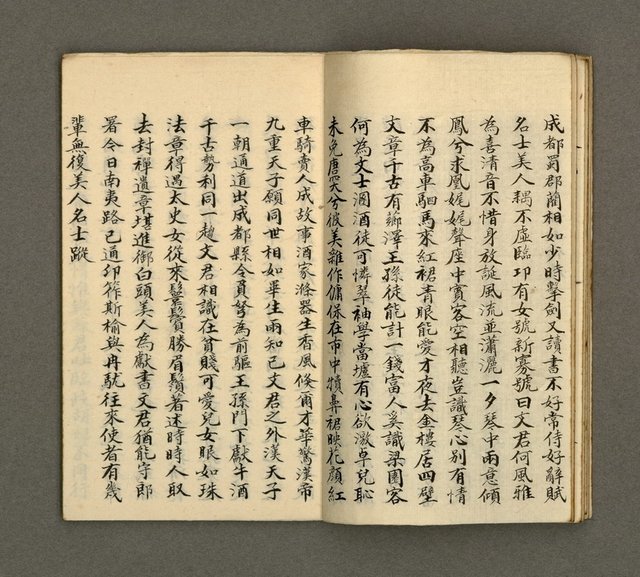 成都蜀郡藺相如少時擊劍又讀書不好常侍好辭賦
名士美人耦不虛臨卭有女號新寡號曰文君何風雅
為喜清音不惜身放誕風流並瀟灑一夕琴中兩意傾
鳳兮求凰娓娓聲座中賓客空相聽豈識琴心別有情
不為高車駟馬來紅裙青眼能愛才夜去金樓居四壁
文章千古有鄉澤王孫徒能計一錢富人奚識梁園客
何為文士溷酒徒可憐翠袖學當壚有心欲激卓兒恥
未免唐突兮彼美雜作傭保在市中犢鼻裙映花顏紅
車騎賣人成故事酒家滌器生香風倐爾才華驚漢帝
九重天子願同世相如畢生兩知己文君之外漢天子
一朝通道出成都縣令負弩為前驅王孫門下獻牛酒
千古勢利同一趨文君相識在貧賤可愛兒女眼如珠
法章得過太史女從來鬒鬢勝眉鬚著述時時人取
去封禪遺章堪進御白頭美人為獻書文君猶能守郎
署令日南夷路已通卭筰斯榆與冉駹往來使者有幾
輩無復美人名士蹤